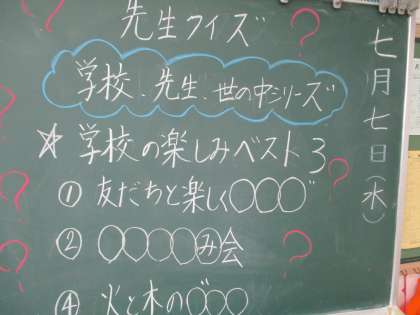 七月七日(水)
先生クイズ
学校、先生、世の中シリーズ
☆学校の楽しみベスト3
① 友だちと楽しく○○○゛
② ○○○○み会
④ 火と木の○゛○○